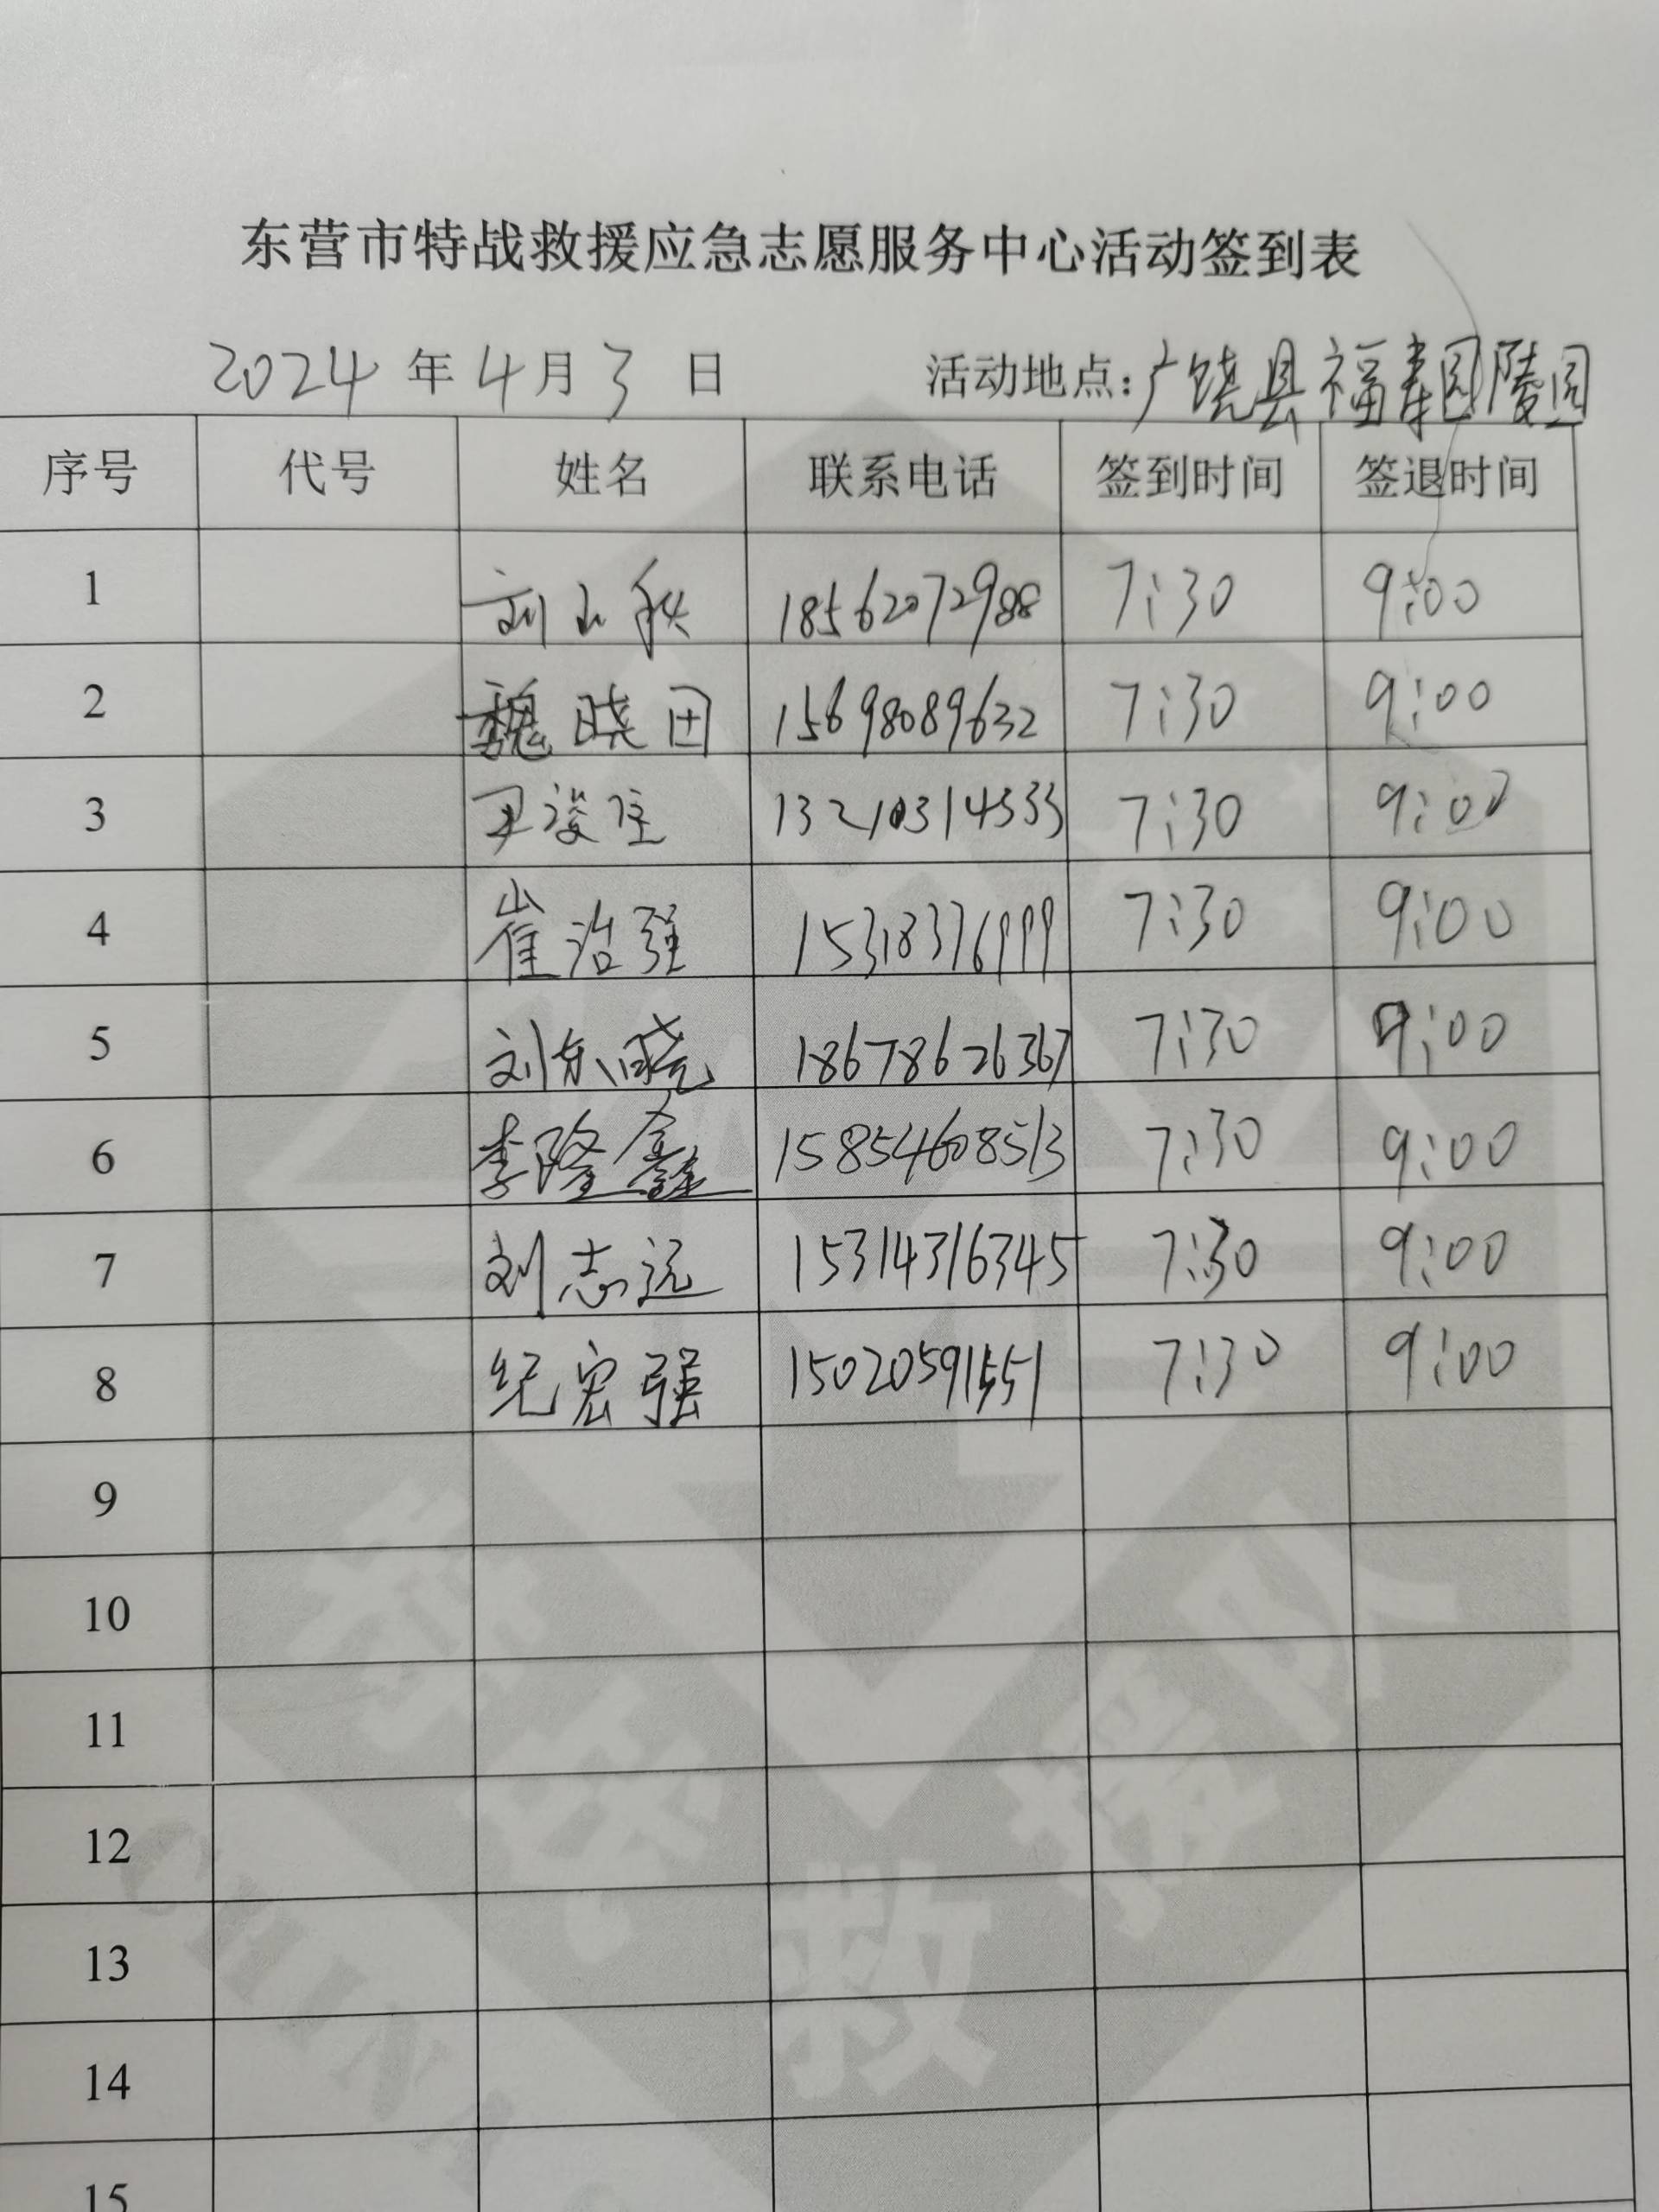 东营市特战救援应急志愿服务中心活动签到表
2024 年 4 月 3 日 活动地点:广饶县福寿园陵园
序号 代号 姓名 联系电话 签到时间 签退时间
1 刘山秋 18562072988 7:30 9:00
2 魏晓田 15698089632 7:30 9:00
3 7:30 9:00
4 崔治强 15318376999 7:30 9:00
5 刘东晓 18678626367 7:30 9:00
6 李隆鑫 15854608513 7:30 9:00
7 刘志远 15314316345 7:30 9:00
8 纪宏强 15020591551 7:30 9:00
9
10
11
12
13
14
15
特战救援队
CHINA